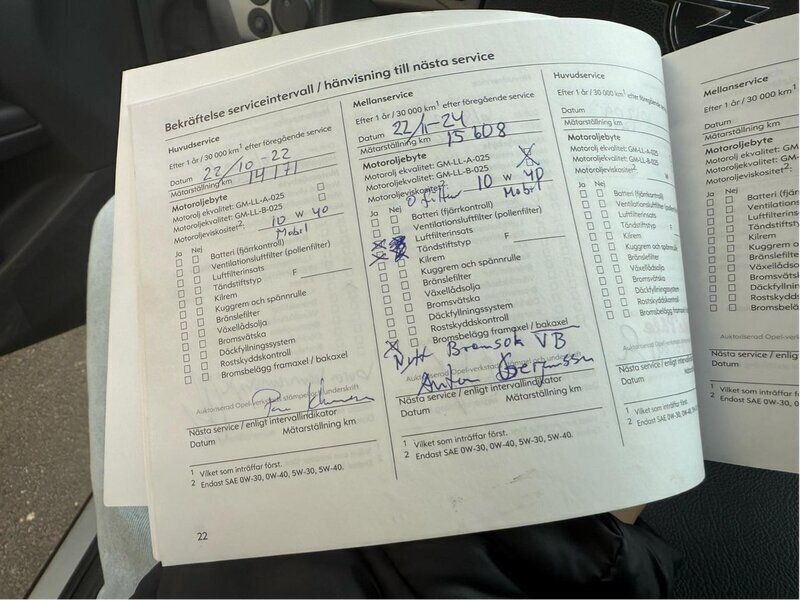 Bekräftelse serviceintervall / hänvisning till nästa service
Huvudservice
Efter 1 år / 30 000 km¹ efter föregående service
Datum 22/10-22
Mätarställning km 14171
Motoroljebyte
Motorolj ekvalitet: GM-LL-A-025
Motorolj ekvalitet: GM-LL-B-025
Motoroljeviskositet², 10 W 40
Mobil
Ja Nej
Batteri (fjärrkontroll)
Ventilationsluftfilter (pollenfilter)
Luftfilterinsats
Tändstiftstyp F
Kilrem
Kuggrem och spännrulle
Bränslefilter
Växellådsolja
Bromsvätska
Däckfyllningssystem
Rostskyddskontroll
Bromsbelägg framaxel / bakaxel
Auktoriserad Opel-verkstad stämpel och underskrift
Nästa service / enligt intervallindikator
Datum Mätarställning km
¹ Vilket som inträffar först.
² Endast SAE 0W-30, 0W-40, 5W-30, 5W-40.
22
Mellanservice
Efter 1 år / 30 000 km¹ efter föregående service
Datum 22/11-24
Mätarställning km 15608
Motoroljebyte
Motoroljekvalitet: GM-LL-A-025
Motoroljekvalitet: GM-LL-B-025
Motoroljeviskositet² 10 W 40
O filter Mobil
Ja Nej
Batteri (fjärrkontroll)
Ventilationsluftfilter (pollenfilter)
Luftfilterinsats
Tändstiftstyp F
Kilrem
Kuggrem och spännrulle
Bränslefilter
Växellådsolja
Bromsvätska
Däckfyllningssystem
Rostskyddskontroll
Bromsbelägg framaxel / bakaxel
Nytt Bromsok VB
Auktoriserad Opel-verkstad stämpel och underskrift
Anton
Nästa service / enligt intervallindikator
Datum Mätarställning km
¹ Vilket som inträffar först.
² Endast SAE 0W-30, 0W-40, 5W-30, 5W-40.
Huvudservice
Efter 1 år / 30 000 km¹ efter föregående
Datum
Mätarställning km
Motoroljebyte
Motoroljekvalitet: GM-LL-A-025
Motoroljekvalitet: GM-LL-B-025
Motoroljeviskositet²,
Ja Nej
Batteri (fjärrkontroll)
Ventilationsluftfilter
Luftfilterinsats
Tändstiftstyp
Kilrem
Kuggrem och
Bränslefilter
Växellådsolja
Bromsvätska
Däckfyllning
Rostskyddskontroll
Bromsbelägg
Auktoriserad Opel-verkstad
Nästa service / enligt
Datum
¹ Vilket som inträffar
² Endast SAE 0W-30, 0W-40,
Mellanservice
Efter 1 år / 30 000 km¹
Datum
Mätarställning km
Motoroljebyte
Motoroljekvalitet:
Motoroljekvalitet:
Motoroljeviskositet
Ja Nej
Auktoriserad Opel-
Nästa service /
Datum
¹ Vilket som
² Endast SAE